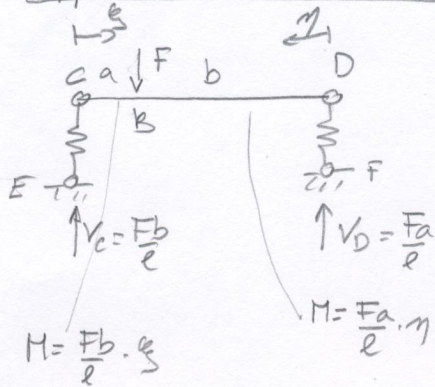 ξ η
C a F b D
B
E F
V_C = Fb/ℓ V_D = Fa/ℓ
M = Fb/ℓ · ξ M = Fa/ℓ · η